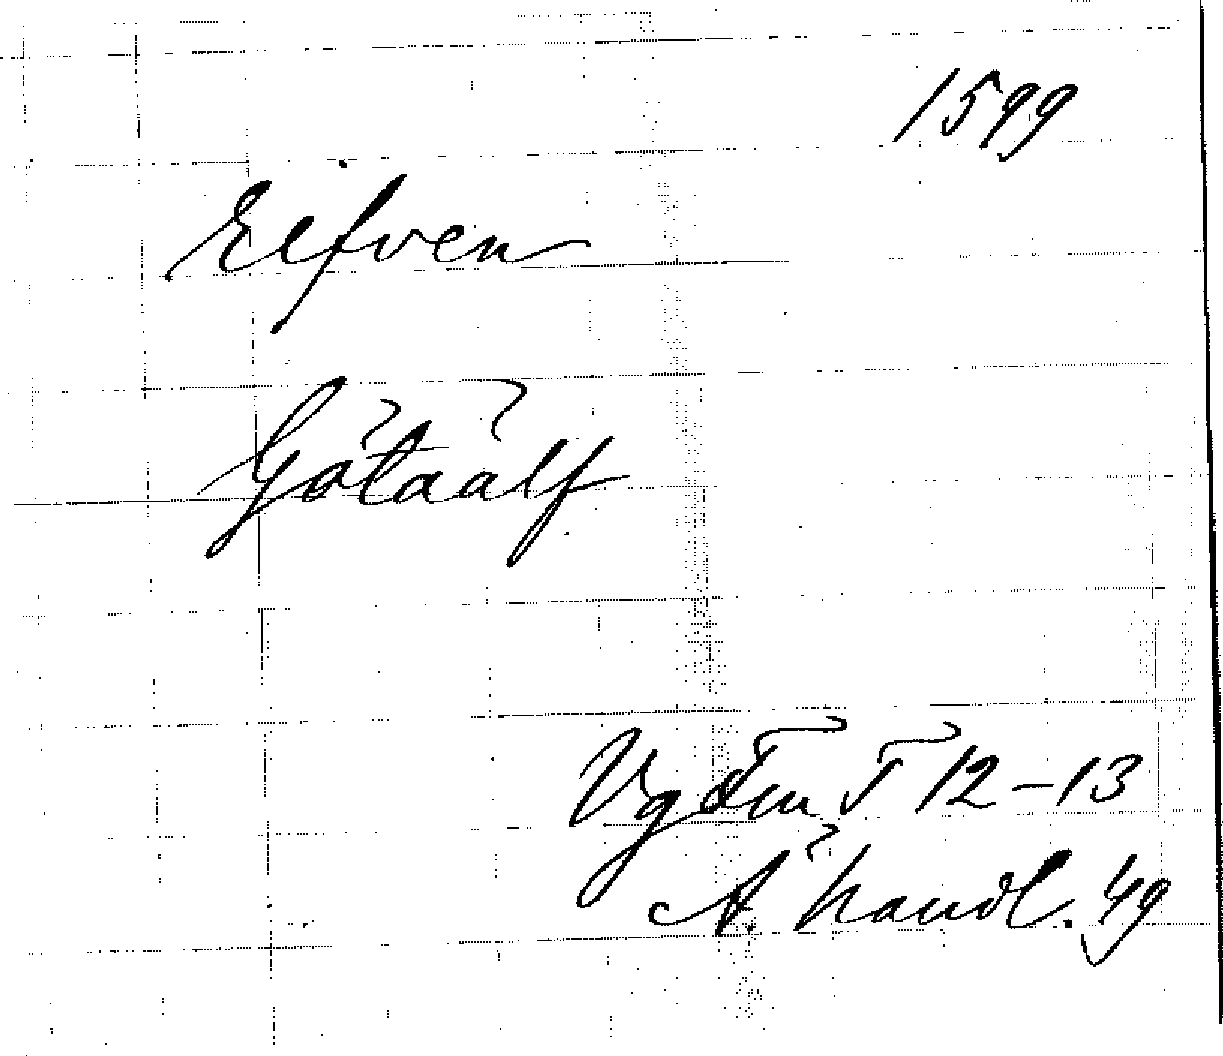 1599
Elfven
Götaälf
Vg Fru T 12-13
Ä. handl. 49